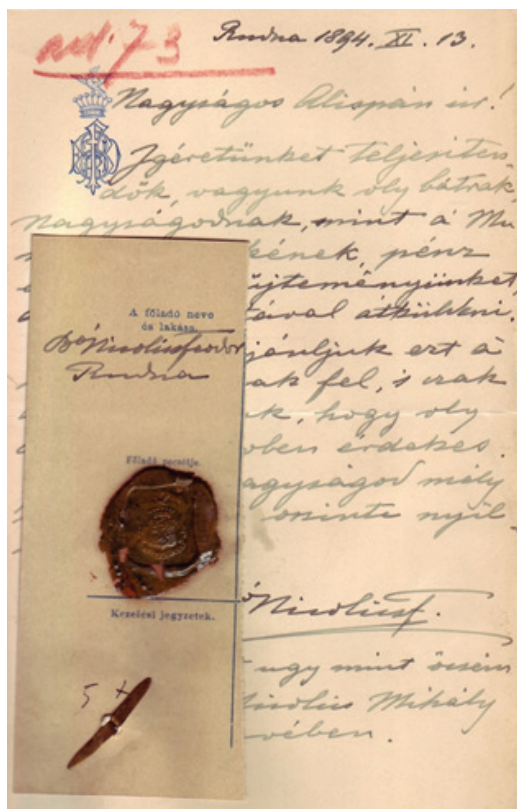 ad. 73
Rudna 1894. XI. 13.
Nagyságos Alispán úr!
Igéretünket teljesiten-
dők, vagyunk oly bátrak,
Nagyságodnak, mint a Mu
kének, pénz
űjteményünket,
tával átküldeni.
jánljuk ezt a
ak fel, s csak
k, hogy oly
ben érdekes.
agyságod mély
őszinte nyil-
Nicolicsf.
ugy mint öcsém
Nicolics Mihály
vében.
A föladó neve
és lakása.
Bó Nicolics Feodor
Rudna
Föladó pecsétje.
Kezelési jegyzetek.
5 +